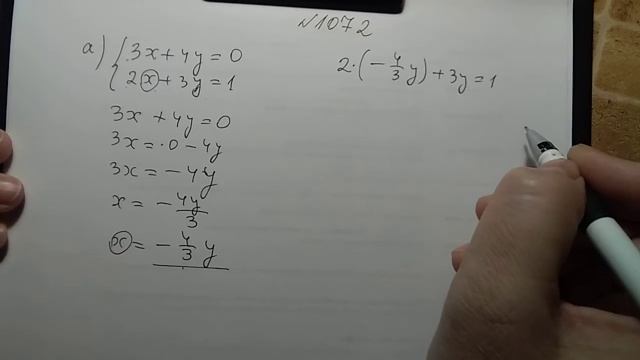 №1072
а) { 3x + 4y = 0
2x + 3y = 1
3x + 4y = 0
3x = 0 - 4y
3x = - 4y
x = - 4y/3
x = - 4/3 y
2·(- 4/3 y) + 3y = 1